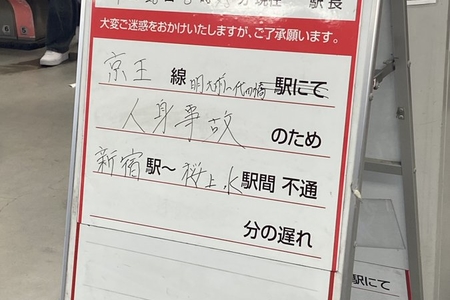 分現在 駅長
大変ご迷惑をおかけいたしますが、ご了承願います。
京王線 明大前〜代田橋 駅にて
人身事故のため
新宿駅〜桜上水駅間 不通
分の遅れ
駅にて